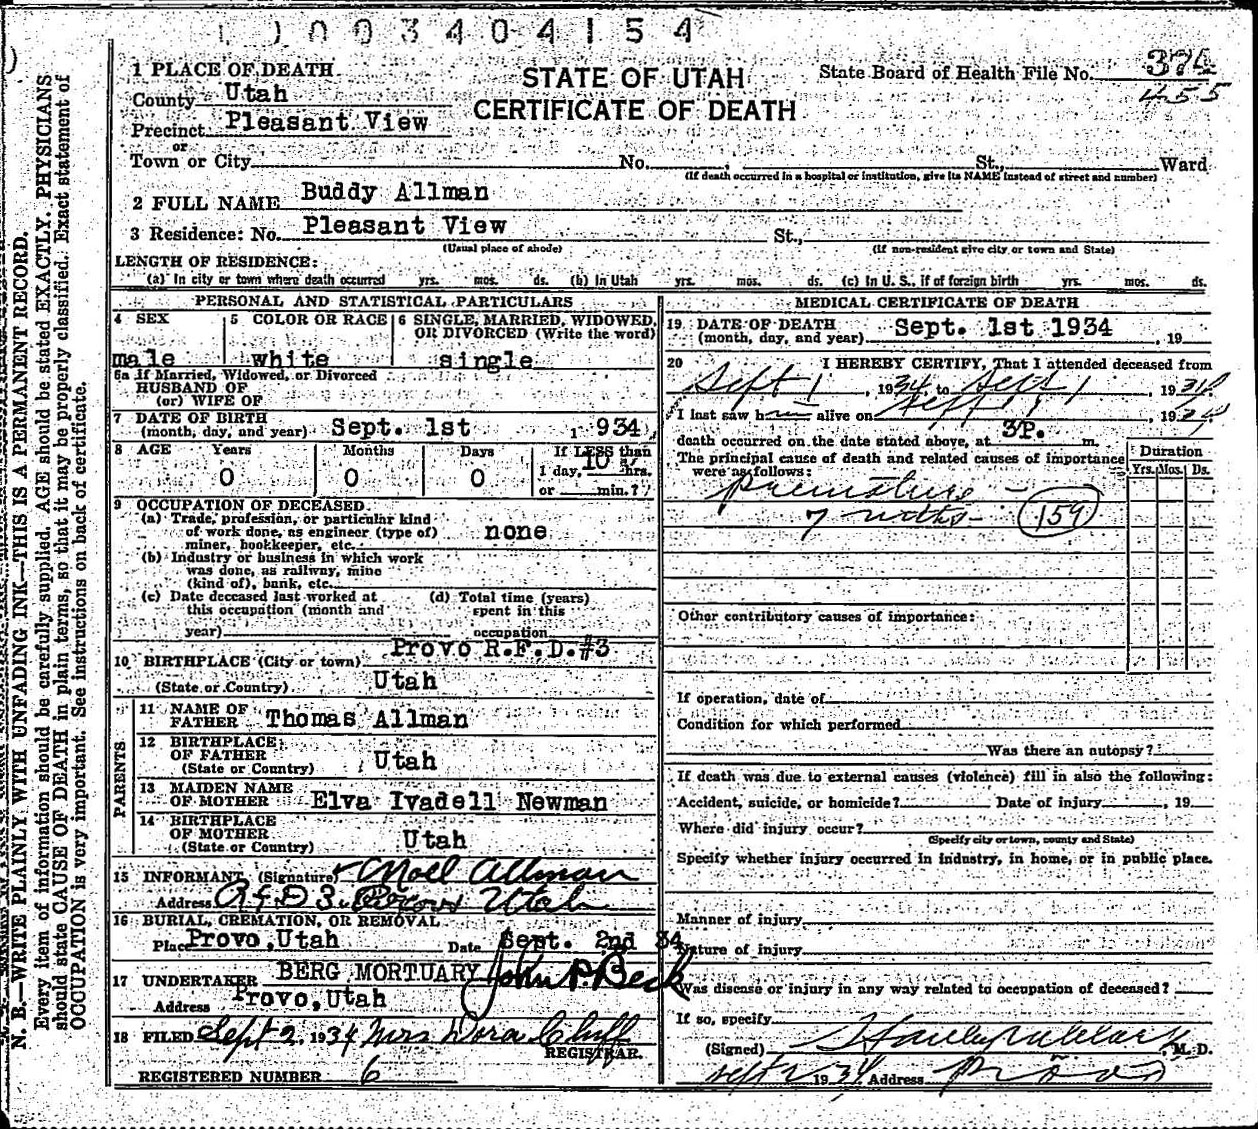 003404154
1 PLACE OF DEATH
STATE OF UTAH
CERTIFICATE OF DEATH
State Board of Health File No. 375
455
County Utah
Precinct Pleasant View
or
Town or City No. St., Ward
(If death occurred in a hospital or institution, give its NAME instead of street and number)
2 FULL NAME Buddy Allman
3 Residence: No. Pleasant View St.,
(Usual place of abode) (If non-resident give city or town and State)
LENGTH OF RESIDENCE:
(a) In city or town where death occurred yrs. mos. ds. (b) In Utah yrs. mos. ds. (c) In U. S., if of foreign birth yrs. mos. ds.
PERSONAL AND STATISTICAL PARTICULARS
4 SEX male
5 COLOR OR RACE white
6 SINGLE, MARRIED, WIDOWED, OR DIVORCED (Write the word) single
6a If Married, Widowed, or Divorced
HUSBAND OF
(or) WIFE OF
7 DATE OF BIRTH
(month, day, and year) Sept. 1st 1 934
8 AGE Years 0 Months 0 Days 0 If LESS than
1 day, 10 hrs.
or min.?
9 OCCUPATION OF DECEASED
(a) Trade, profession, or particular kind
of work done, as engineer (type of) none
miner, bookkeeper, etc.
(b) Industry or business in which work
was done, as railway, mine
(kind of), bank, etc.
(c) Date deceased last worked at
this occupation (month and
year)
(d) Total time (years)
spent in this
occupation
10 BIRTHPLACE (City or town) Provo R.F.D.#3
(State or Country) Utah
PARENTS
11 NAME OF
FATHER Thomas Allman
12 BIRTHPLACE
OF FATHER Utah
(State or Country)
13 MAIDEN NAME
OF MOTHER Elva Ivadell Newman
14 BIRTHPLACE
OF MOTHER Utah
(State or Country)
15 INFORMANT (Signature) Noel Allman
Address R F D 3 Provo Utah
16 BURIAL, CREMATION, OR REMOVAL
Place Provo, Utah Date Sept. 2nd 34
17 UNDERTAKER BERG MORTUARY John P. Beck
Address Provo, Utah
18 FILED Sept 2 1934 Mrs Dora Cluff
REGISTRAR.
REGISTERED NUMBER 6
MEDICAL CERTIFICATE OF DEATH
19 DATE OF DEATH
(month, day, and year) Sept. 1st 1934, 19
20 I HEREBY CERTIFY, That I attended deceased from
Sept 1, 1934, to Sept 1, 1934
I last saw h alive on Sept 1, 1934
death occurred on the date stated above, at 3P. m.
The principal cause of death and related causes of importance
were as follows:
Duration
Yrs. Mos. Ds.
premature -
7 mths - 159
Other contributory causes of importance:
If operation, date of
Condition for which performed
Was there an autopsy?
If death was due to external causes (violence) fill in also the following:
Accident, suicide, or homicide? Date of injury , 19
Where did injury occur?
(Specify city or town, county and State)
Specify whether injury occurred in industry, in home, or in public place.
Manner of injury
Nature of injury
Was disease or injury in any way related to occupation of deceased?
If so, specify
(Signed) M. D.
Sept 2 1934 Address Provo
N. B.—WRITE PLAINLY, WITH UNFADING INK—THIS IS A PERMANENT RECORD.
Every item of information should be carefully supplied. AGE should be stated EXACTLY. PHYSICIANS
should state CAUSE OF DEATH in plain terms, so that it may be properly classified. Exact statement of
OCCUPATION is very important. See instructions on back of certificate.